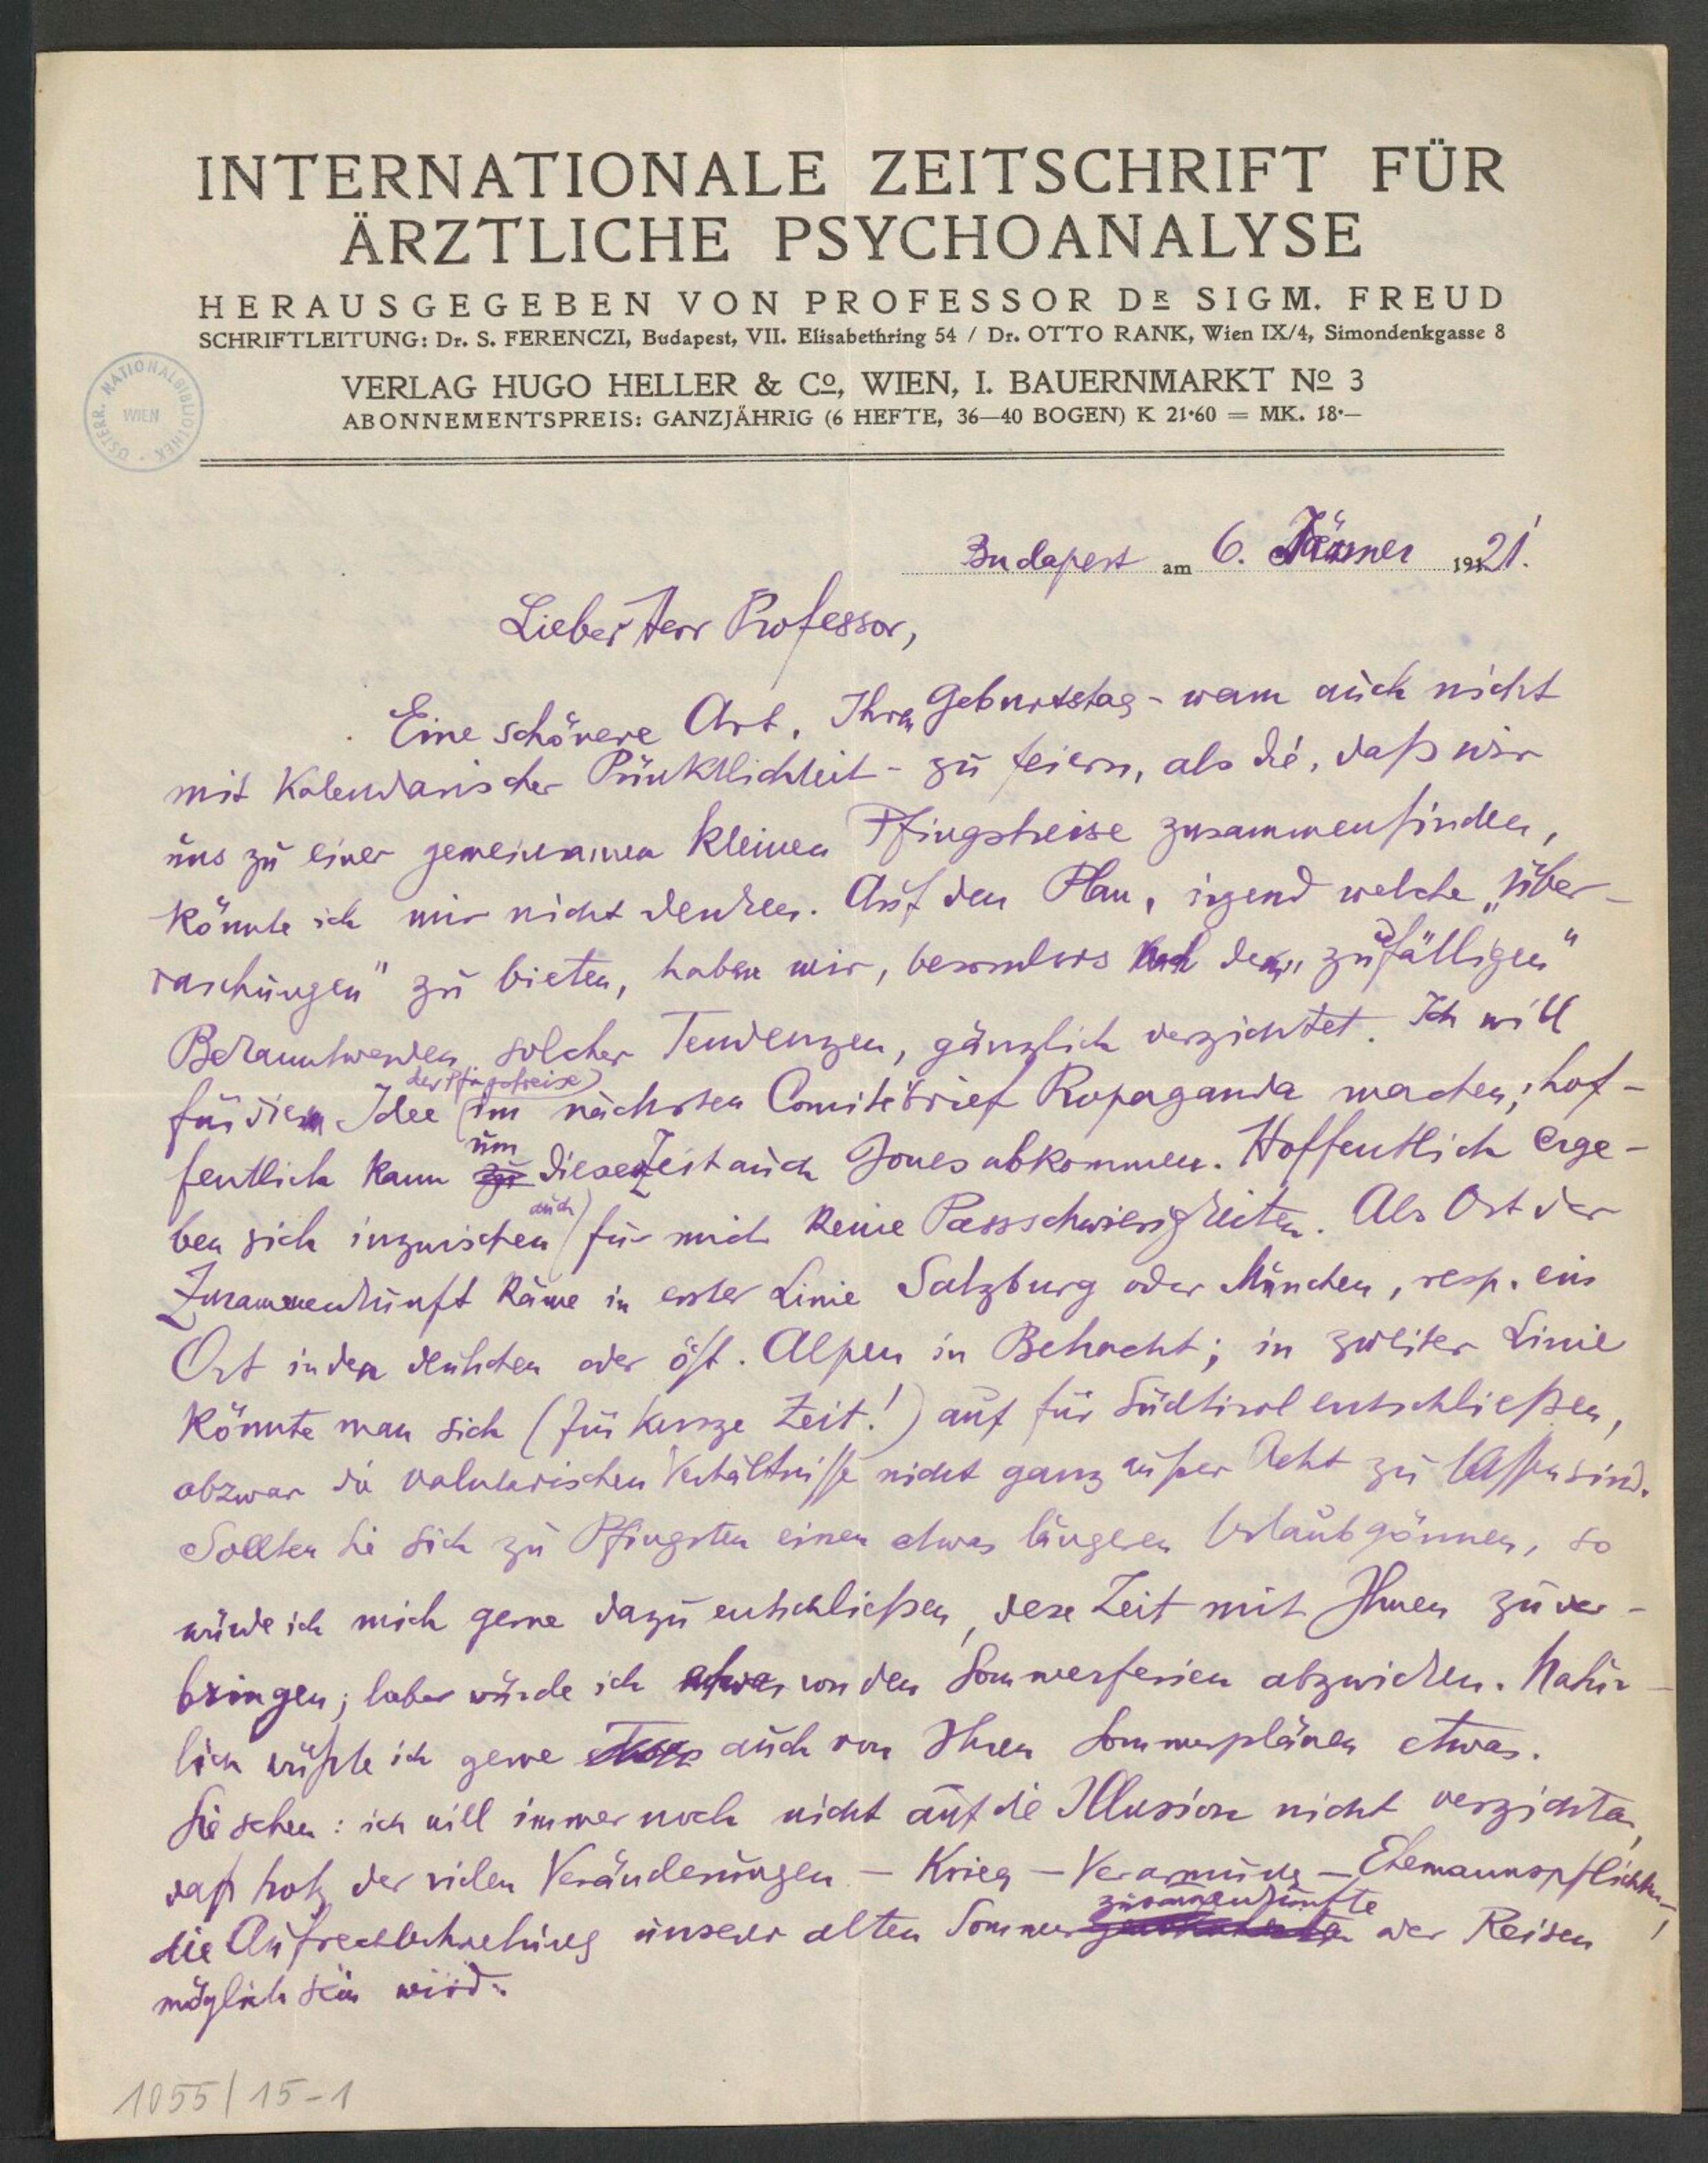 INTERNATIONALE ZEITSCHRIFT FÜR
ÄRZTLICHE PSYCHOANALYSE
HERAUSGEGEBEN VON PROFESSOR DR SIGM. FREUD
SCHRIFTLEITUNG: Dr. S. FERENCZI, Budapest, VII. Elisabethring 54 / Dr. OTTO RANK, Wien IX/4, Simondenkgasse 8
VERLAG HUGO HELLER & Co, WIEN, I. BAUERNMARKT No 3
ABONNEMENTSPREIS: GANZJÄHRIG (6 HEFTE, 36—40 BOGEN) K 21·60 = MK. 18·—
ÖSTERR. NATIONALBIBLIOTHEK WIEN
Budapest am 6. Jänner 1921.
Lieber Herr Professor,
Eine schönere Art, Ihren Geburtstag - wenn auch nicht
mit kalendarischer Pünktlichkeit - zu feiern, als die, daß wir
uns zu einer gemeinsamen kleinen Pfingstreise zusammenfinden,
könnte ich mir nicht denken. Auf den Plan, irgend welche „Über-
raschungen" zu bieten, haben wir, besonders nach dem „zufälligen"
Bekanntwerden solcher Tendenzen, gänzlich verzichtet. Ich will
für diese Idee (der Pfingstreise) im nächsten Comitébrief Propaganda machen; hof-
fentlich kann um diese Zeit auch Jones abkommen. Hoffentlich erge-
ben sich inzwischen auch für mich keine Passschwierigkeiten. Als Ort der
Zusammenkunft käme in erster Linie Salzburg oder München, resp. ein
Ort in den deutschen oder öst. Alpen in Betracht; in zweiter Linie
könnte man sich (für kurze Zeit!) auf für Südtirol entschließen,
obzwar die valutarischen Verhältnisse nicht ganz außer Acht zu lassen sind.
Sollten Sie sich zu Pfingsten einen etwas längeren Urlaub gönnen, so
würde ich mich gerne dazu entschließen, diese Zeit mit Ihnen zu ver-
bringen; lieber würde ich etwas von den Sommerferien abzwicken. Natür-
lich wüßte ich gerne auch von Ihren Sommerplänen etwas.
Sie sehen: ich will immer noch nicht auf die Illusion nicht verzichten,
daß trotz der vielen Veränderungen — Krieg — Verarmung — Ehemannspflichten —,
die Aufrechterhaltung unserer alten Sommerzusammenkünfte oder Reisen
möglich sein wird.
1055/15-1